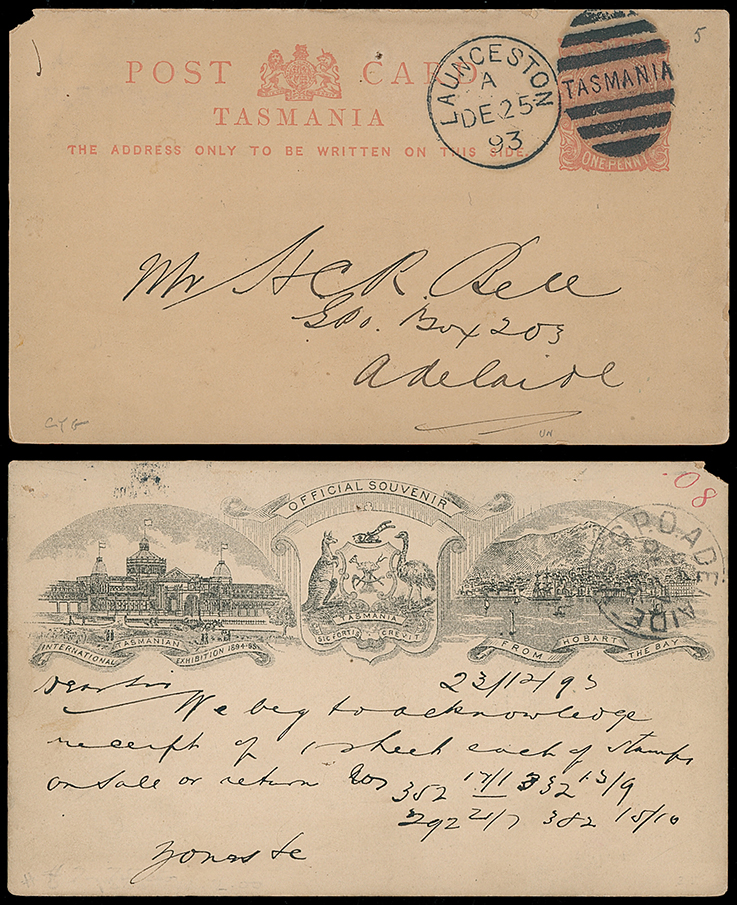 5
POST CARD
TASMANIA
THE ADDRESS ONLY TO BE WRITTEN ON THIS SIDE.
LAUNCESTON
A
DE 25
93
TASMANIA
ONE PENNY
Mr H C R. Bell
GPO. Box 203
Adelaide
UN
OFFICIAL SOUVENIR
.08
G.P.O. ADELAIDE
TASMANIA
SIC FORTIS CREVIT
INTERNATIONAL TASMANIAN EXHIBITION 1894-95
FROM HOBART THE BAY
23/12/93
Dear Sir
We beg to acknowledge
receipt of 1 sheet each of Stamps
on Sale or return Nos 352 17/1 332 13/9
292 21/7 382 15/10
Yours &c